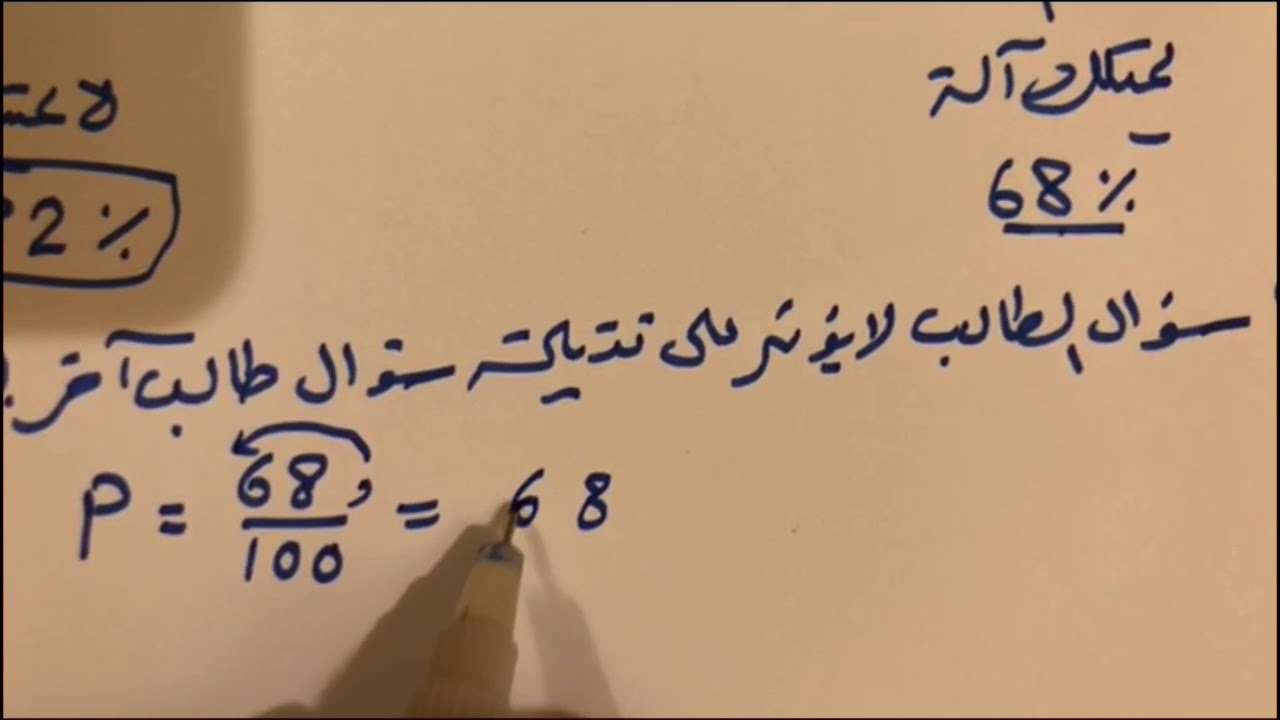 يمتلك آلة
68 ٪
2 ٪
سؤال الطالب لا يؤثر على نتيجة سؤال طالب آخر
P = 68, / 100 = 68